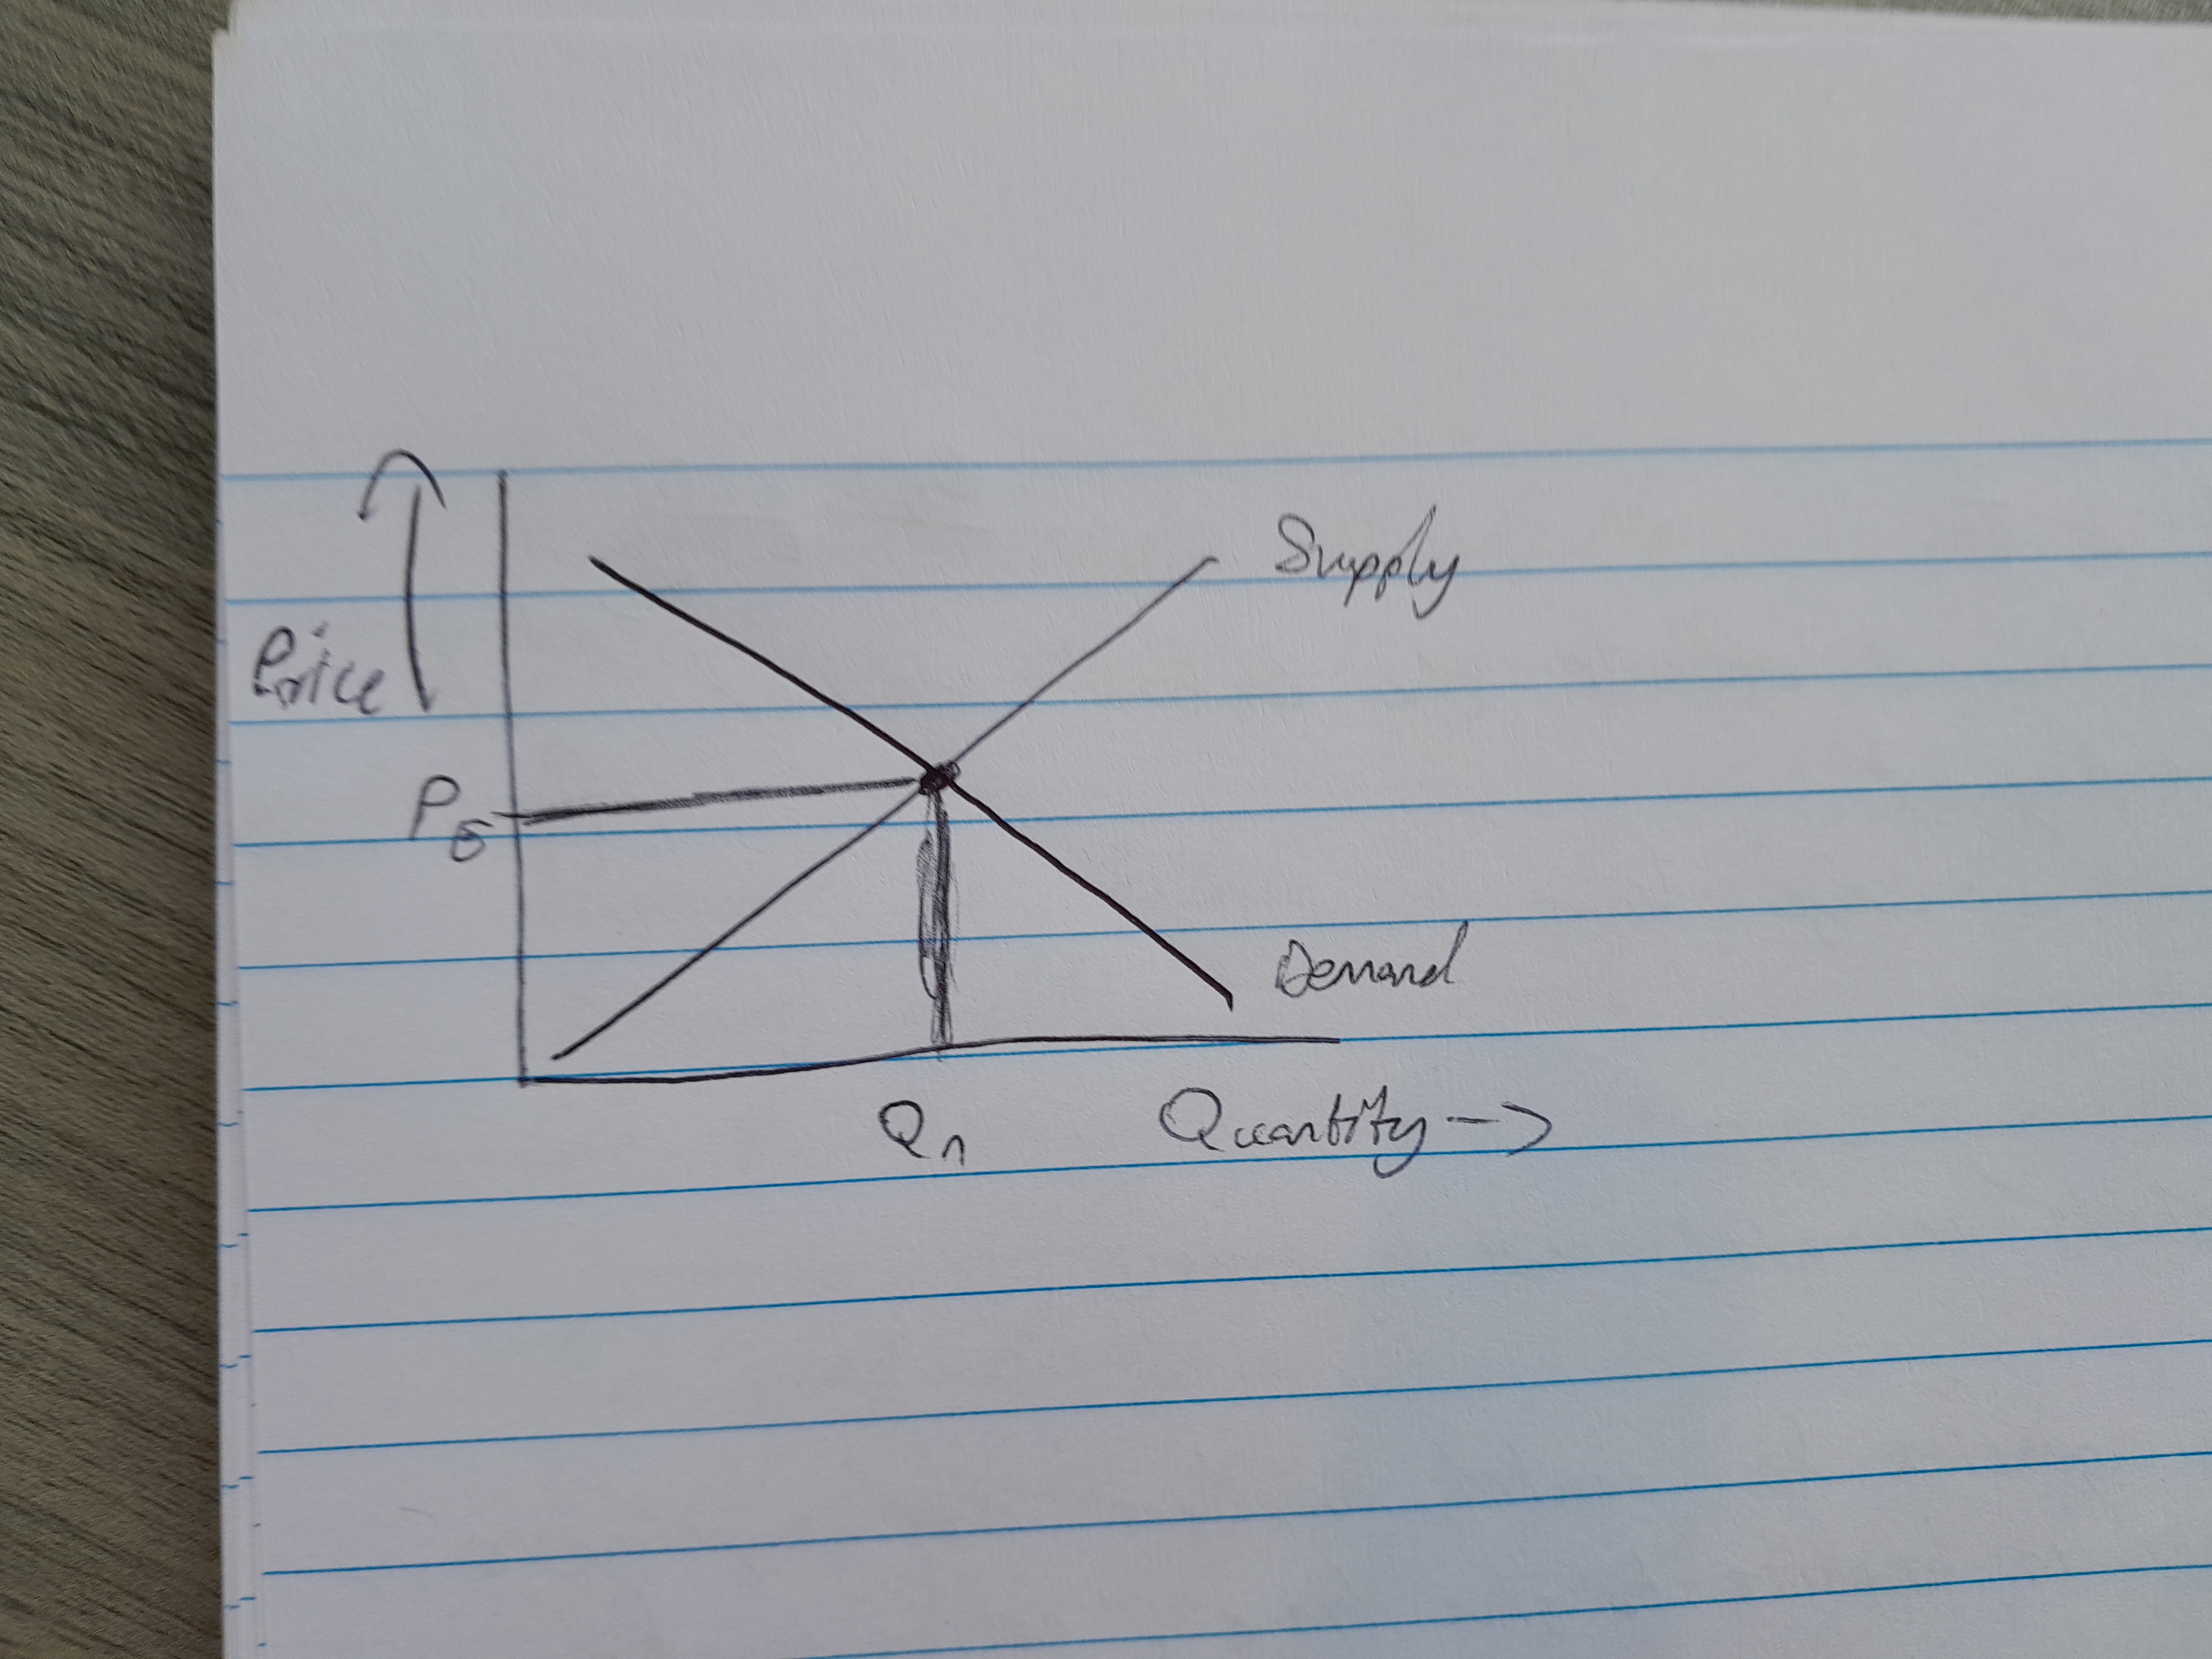 Price
Supply
P
Demand
Qn
Quantity →